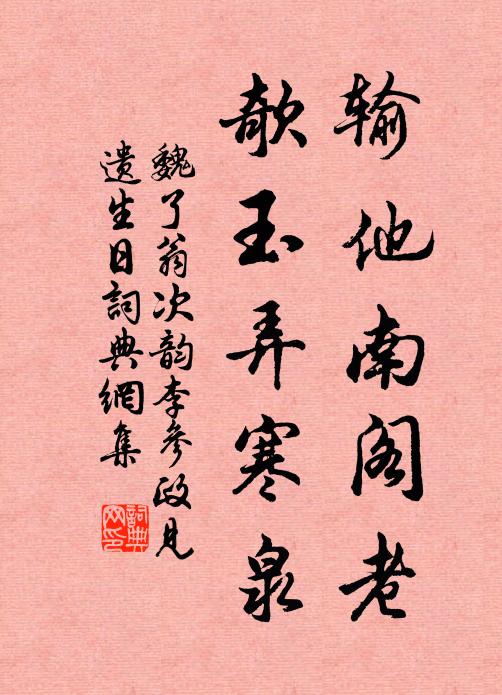 输他南阁老
欹玉弄寒泉
魏了翁次韵李参政见
遗生日詞典網集
詞典网印